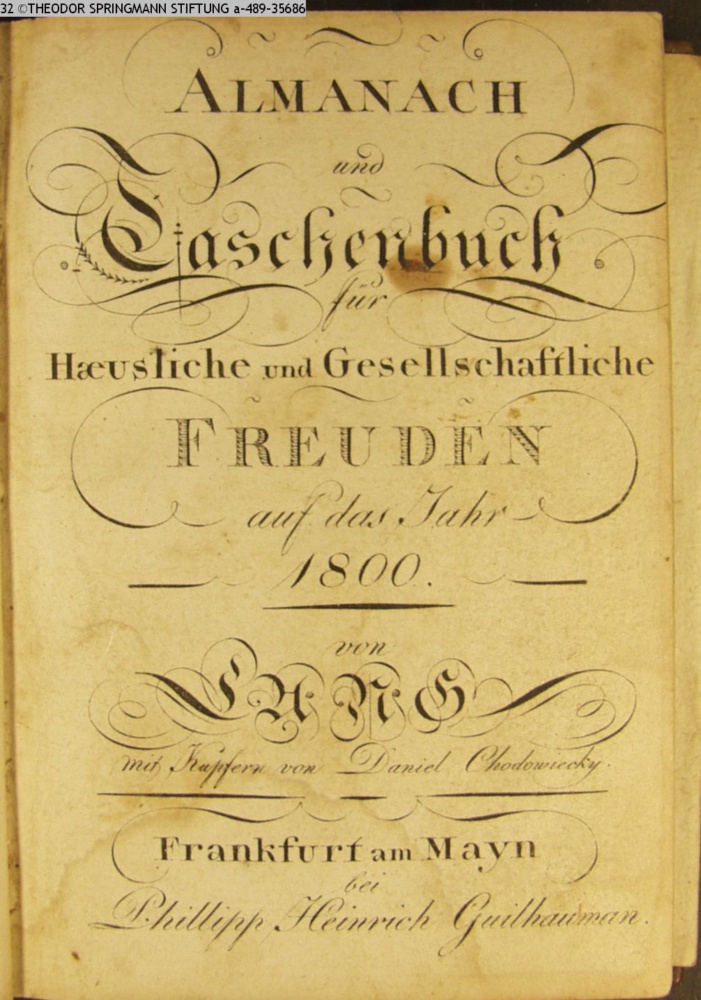 32 ©THEODOR SPRINGMANN STIFTUNG a-489-35686
ALMANACH
und
Taschenbuch
für
Hæusliche und Gesellschaftliche
FREUDEN
auf das Jahr
1800.
von
LANG
mit Kupfern von Daniel Chodowiecky.
Frankfurt am Mayn
bei
Phillipp Heinrich Guilhauman.